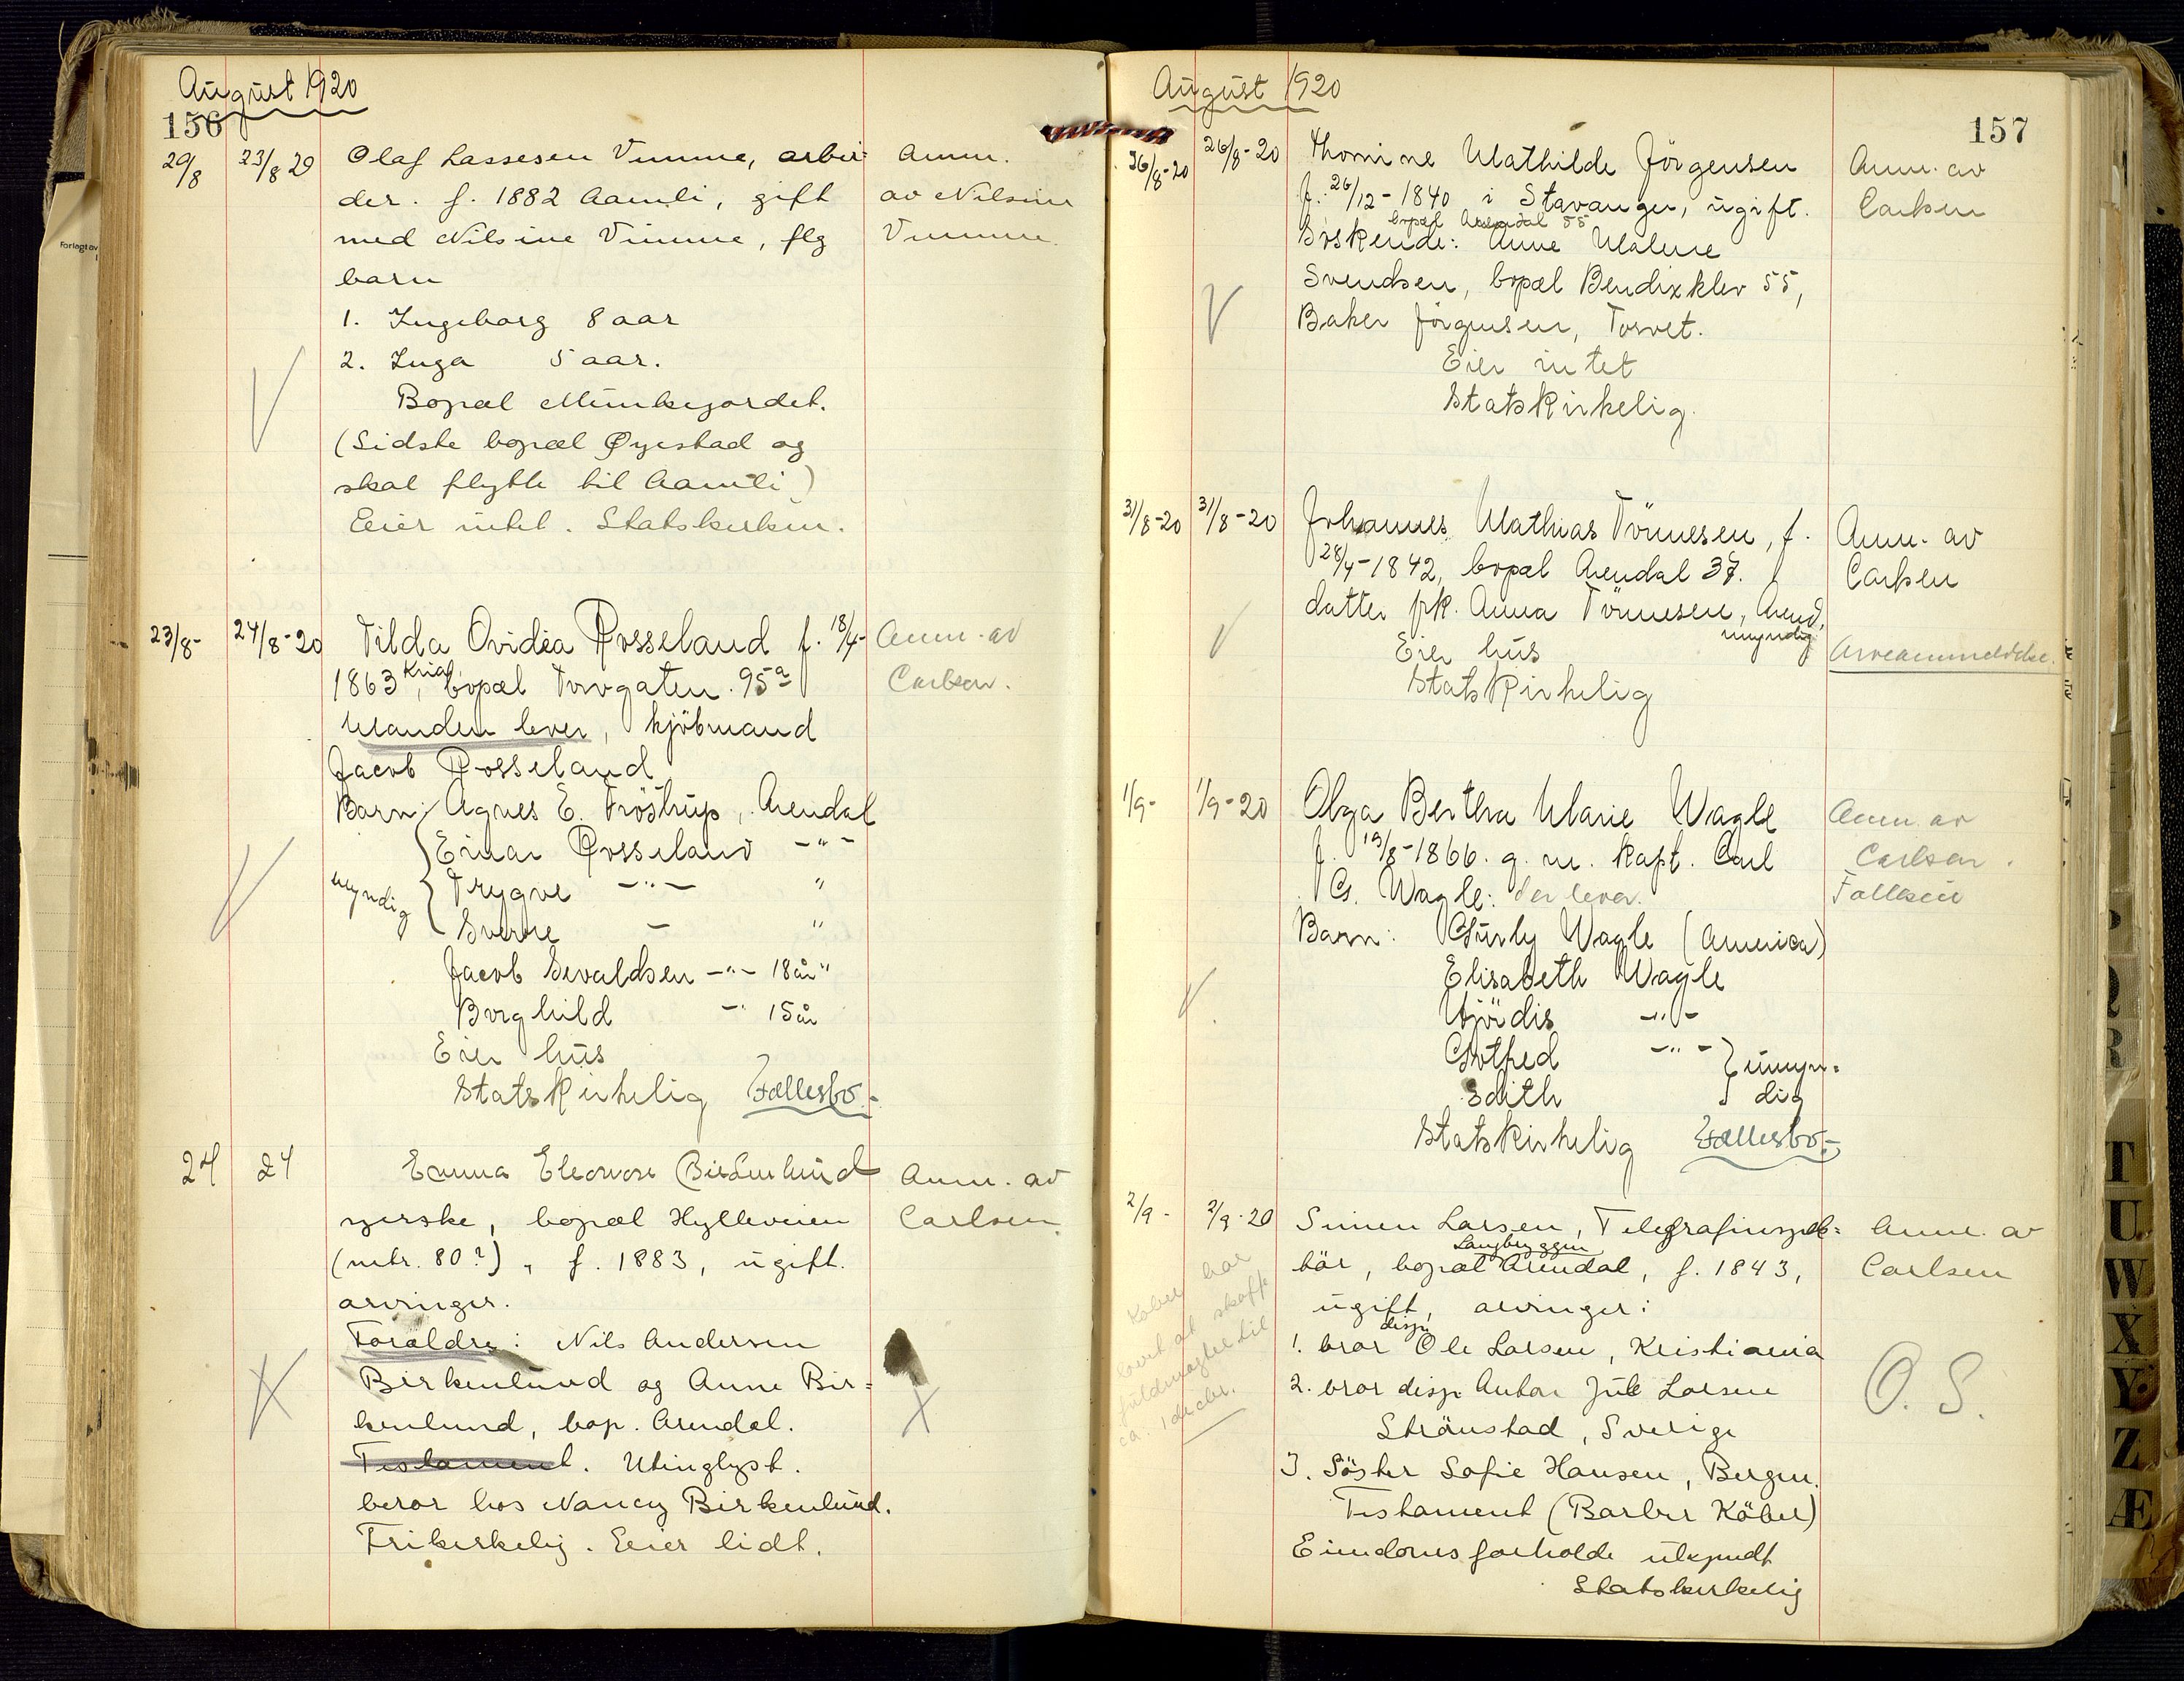 August 1920
156
29/8 23/8 29 Olaf Lassesen Vimme, arbei= Anm.
der. f. 1882 Aamli, gift av Nilsine
med Nilsine Vimme, flg Vimme.
barn
1. Ingeborg 8 aar
2. Inga 5 aar.
Bopæl Munkejordet.
(Sidste bopæl Øyestad og
skal flytte til Aamli)
Eeier intet. Statskirken.
23/8- 24/8-20 Tilda Ovidia Rosseland f. 18/4- Anm. av
1863 Krias, bopæl Torvgaten. 95a Carlsen.
Manden lever, kjöbmand
Jacob Rosseland
Barn: Agnes E. Fröstrup, Arendal
Einar Rosseland -"-
myndig Trygve -"- "
Sverre - "
Jacob Sevaldsen -"- 18 år "
Borghild -" 15 år
Eier hus
Statskirkelig Fællesbo.-
24 24 Emma Eleonore Birkenlund Anm. av
syerske, bopæl Hylleveien Carlsen
(mtr. 80?), f. 1883, ugift.
arvinger.
Forældre: Nils Andersen
Birkenlund og Anne Bir=
kenlund, bop. Arendal.
Testament. Utinglyst.
beror hos Nancy Birkenlund.
Frikirkelig. Eeier lidt.
August 1920
157
26/8-20 26/8-20 Thomine Mathilde Jörgensen Anm. av
f. 26/12-1840 i Stavanger, ugift. Carlsen
bopæl Arendal 55
Söskende: Anne Malene
Svendsen, bopæl Bendixklev 55,
Baker Jörgensen, Torvet.
Eier intet
Statskirkelig.
31/8-20 31/8-20 Johannes Mathias Tönnesen, f. Anm. av
28/4-1842, bopæl Arendal 37. Carlsen
datter frk. Anna Tönnesen, Arend.
myndig
Eier hus Arveanmeldelse.
Statskirkelig
1/9- 1/9-20 Olga Bertha Marie Wagle Anm. av
f. 19/8-1866. g. m. Kapt. Carl Carlsen.
G. Wagle: der lever. Falksen
Barn: Gurly Wagle (America)
Elisabeth Wagle
Hjördis -"-
Gothed -"- } umyn=
Edith dig
Statskirkelig Fællesbo.-
2/9- 2/9-20 Simen Larsen, Telegrafinspek= Anm. av
Langbryggen
tör, bopæl Arendal, f. 1843, Carlsen
ugift, arvinger:
disp.
1. bror Ole Larsen, Kristiania
2. bror disp. Anton Jul Larsen O. S.
Strömstad, Sverige
3. Söster Sofie Hansen, Bergen.
Testament (Barber Köber)
Eiendomsforholde utkjendt
Statskirkelig
Köber har
lovet at skaffe
fuldmagter til
ca. 1 decbr.
T
U
W
X
Y
Z
Æ